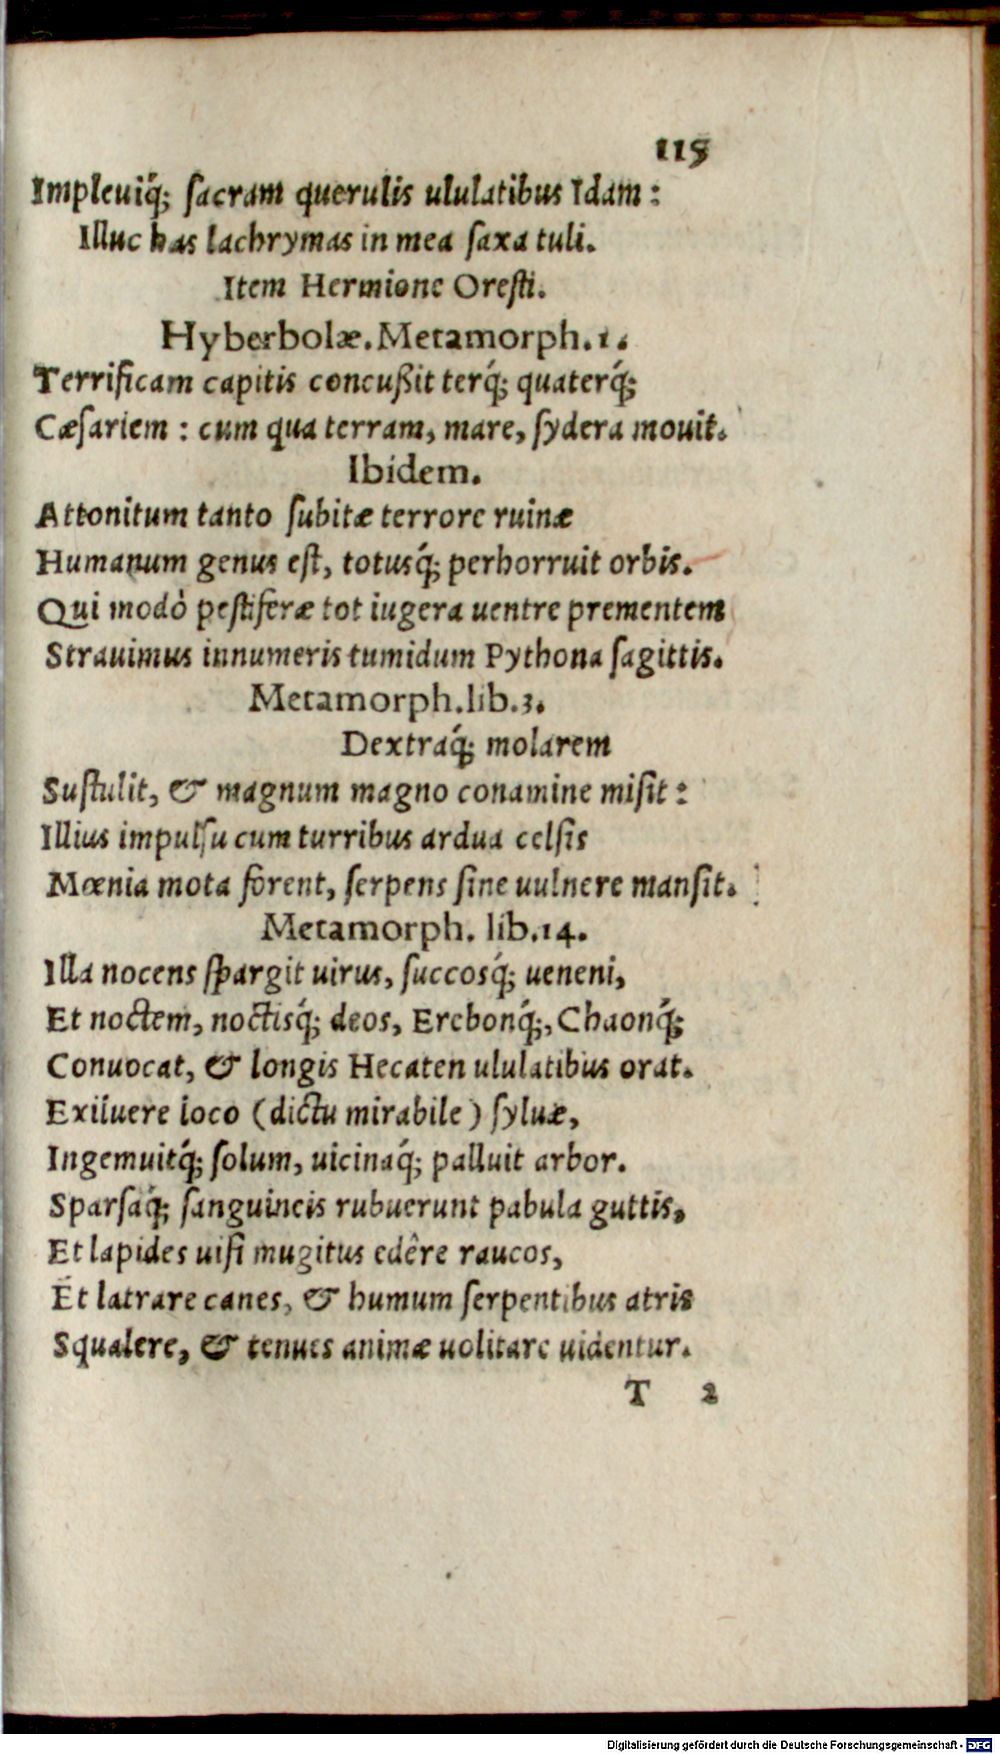 115
Impleuiq́; sacram querulis ululatibus Idam:
Illuc has lachrymas in mea saxa tuli.
Item Hermione Oresti.
Hyberbolæ. Metamorph. 1.
Terrificam capitis concußit terq́; quaterq́;
Cæsariem: cum qua terram, mare, sydera mouit.
Ibidem.
Attonitum tanto subitæ terrore ruinæ
Humanum genus est, totusq́; perhorruit orbis.
Qui modò pestiferæ tot iugera uentre prementem
Strauimus innumeris tumidum Pythona sagittis.
Metamorph. lib. 3.
Dextraq́; molarem
Sustulit, & magnum magno conamine misit:
Illius impulsu cum turribus ardua celsis
Mœnia mota forent, serpens sine uulnere mansit.
Metamorph. lib. 14.
Illa nocens spargit uirus, succosq́; ueneni,
Et noctem, noctisq́; deos, Erebonq́;, Chaonq́;
Conuocat, & longis Hecaten ululatibus orat.
Exiluere loco (dictu mirabile) syluæ,
Ingemuitq́; solum, uicinaq́; palluit arbor.
Sparsaq́; sanguineis rubuerunt pabula guttis,
Et lapides uisi mugitus edêre raucos,
Et latrare canes, & humum serpentibus atris
Squalere, & tenues animæ uolitare uidentur.
T 2
Digitalisierung gefördert durch die Deutsche Forschungsgemeinschaft - DFG